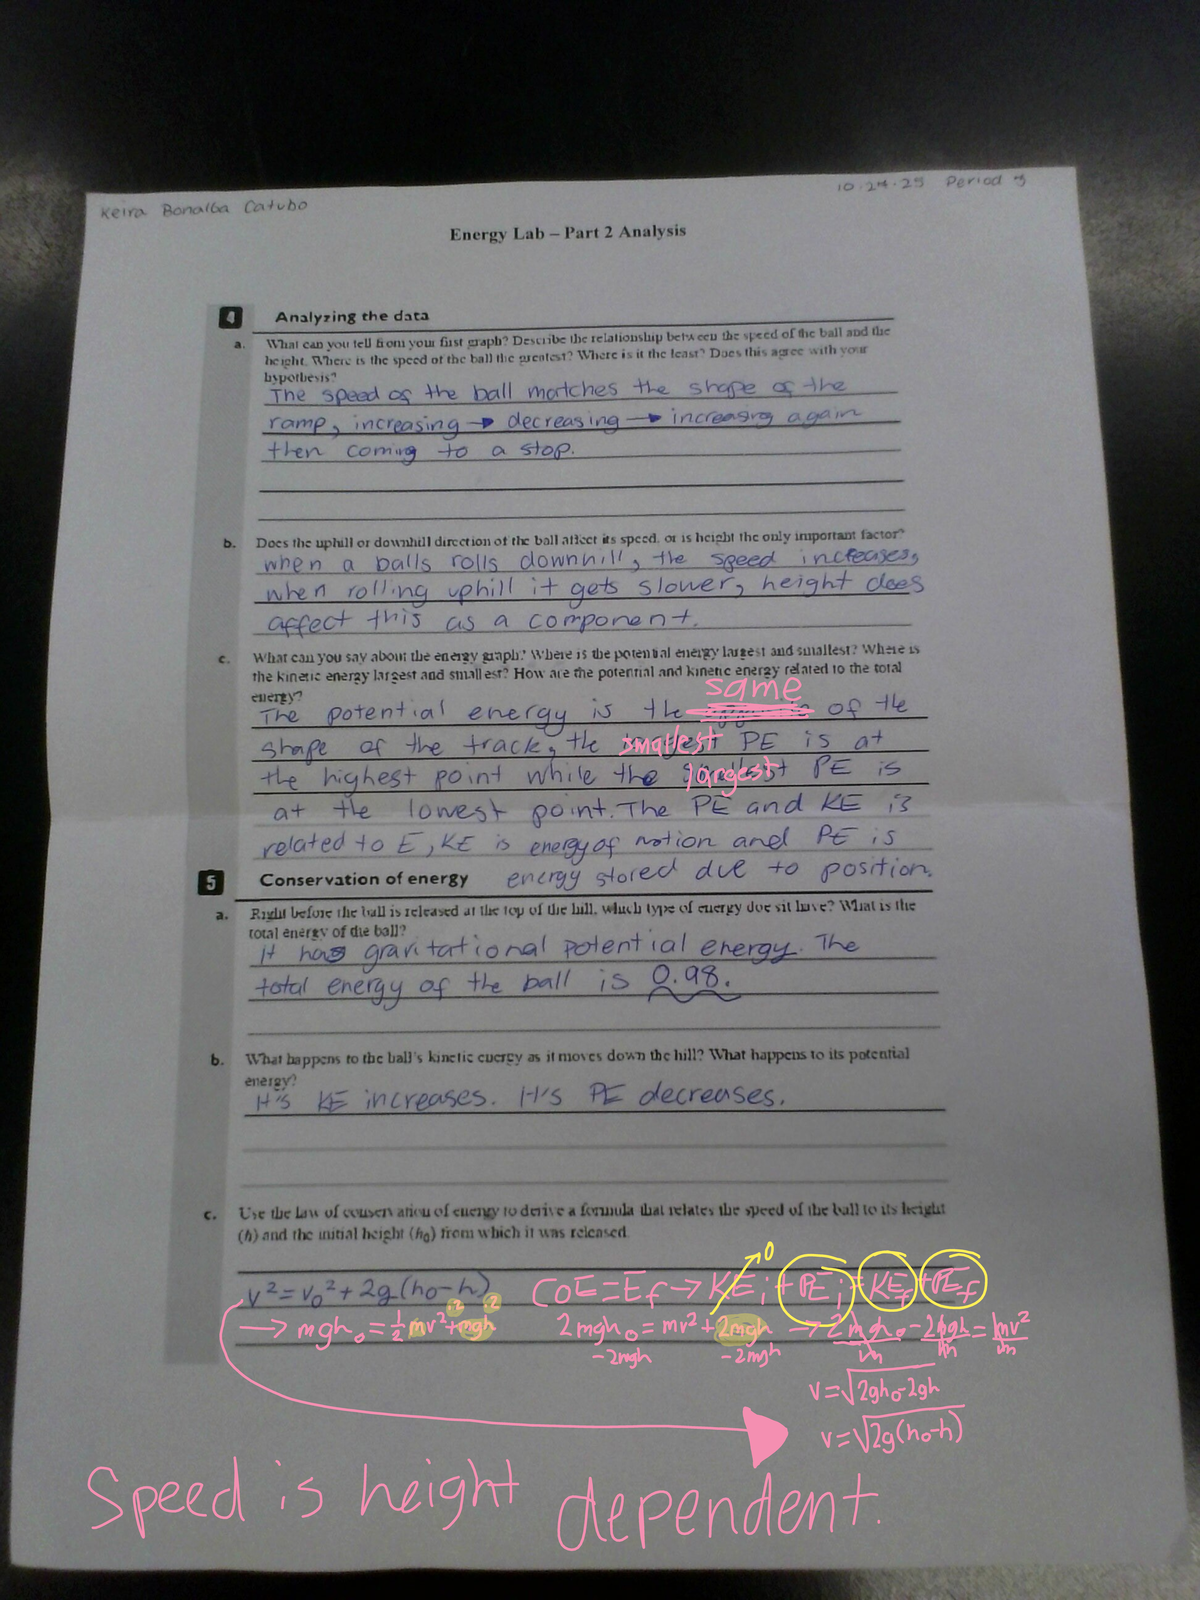 Keira Bonalba Catubo
10.24.25 Period 3
Energy Lab – Part 2 Analysis
4 Analyzing the data
a. What can you tell from your first graph? Describe the relationship between the speed of the ball and the
height. Where is the speed of the ball the greatest? Where is it the least? Does this agree with your
hypothesis?
The speed of the ball matches the shape of the
ramp, increasing → decreasing → increasing again
then coming to a stop.
b. Does the uphill or downhill direction of the ball affect its speed, or is height the only important factor?
when a balls rolls downhill, the speed increases,
when rolling uphill it gets slower, height does
affect this as a component.
c. What can you say about the energy graph? Where is the potential energy largest and smallest? Where is
the kinetic energy largest and smallest? How are the potential and kinetic energy related to the total
energy?
same
The potential energy is the of the
shape of the track, the smallest PE is at
the highest point while the largest PE is
at the lowest point. The PE and KE is
related to E, KE is energy of motion and PE is
energy stored due to position.
5 Conservation of energy
a. Right before the ball is released at the top of the hill, which type of energy doe sit have? What is the
total energy of the ball?
It has gravitational potential energy. The
total energy of the ball is 0.98.
b. What happens to the ball's kinetic energy as it moves down the hill? What happens to its potential
energy?
It's KE increases. It's PE decreases.
c. Use the law of conservation of energy to derive a formula that relates the speed of the ball to its height
(h) and the initial height (h₀) from which it was released.
v² = v₀² + 2g(h₀-h) CoE = Ef → KEi + PEi = KEf + PEf
0
→ mgh₀ = ½mv² + mgh 2mgh₀ = mv² + 2mgh → 2mgh₀ - 2mgh = mv²
·2 ·2
-2mgh -2mgh m m m
v = √2gh₀-2gh
v = √2g(h₀-h)
Speed is height dependent.